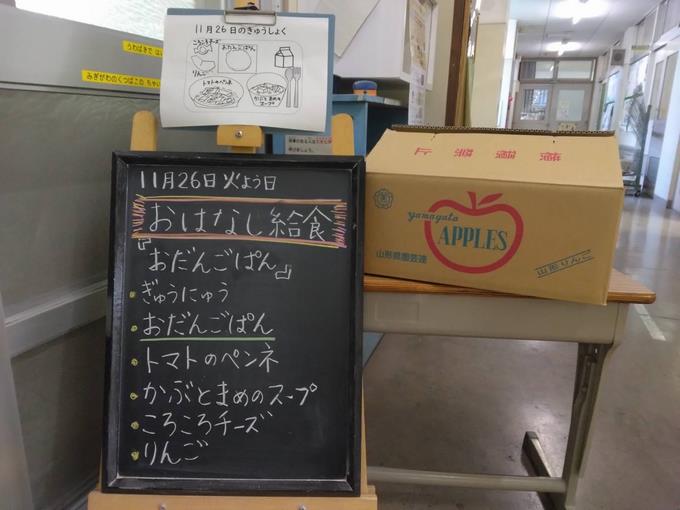 11月26日のきゅうしょく
ころころチーズ
おだんごぱん
りんご
トマトのペンネ
かぶとまめのスープ
うわばきで
みぎがわのくつばこの
11月26日火よう日
おはなし給食
『おだんごぱん』
・ぎゅうにゅう
・おだんごぱん
・トマトのペンネ
・かぶとまめのスープ
・ころころチーズ
・りんご
yamagata
APPLES
山形県園芸連
山形りんご